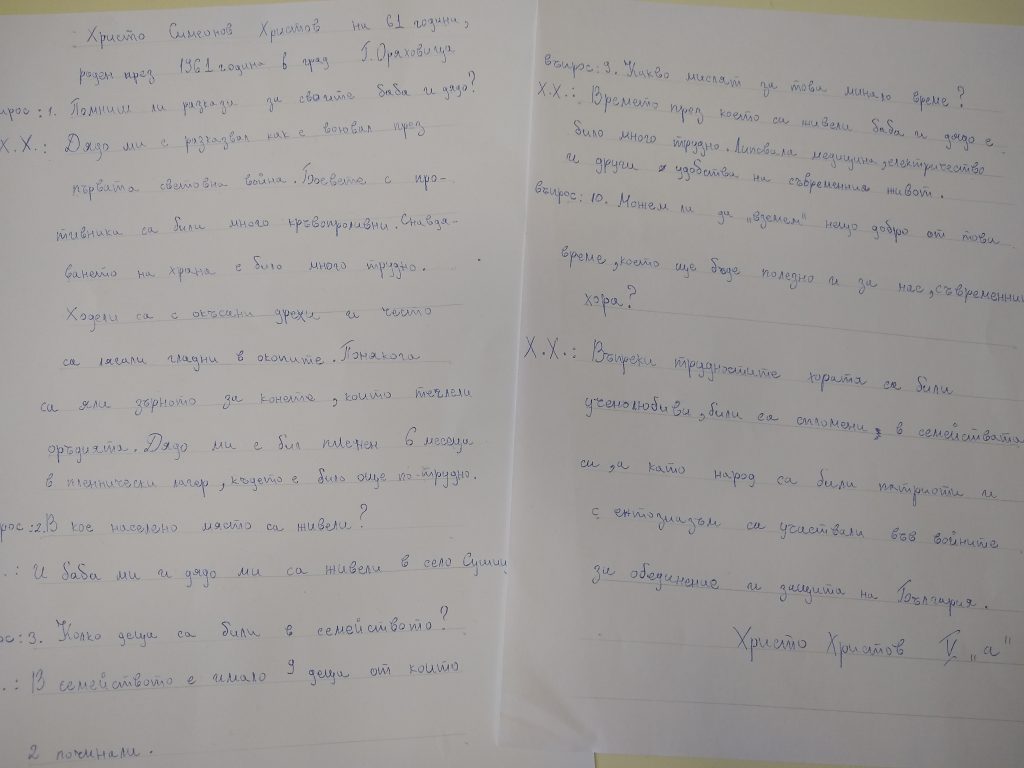 : Христо Симеонов Христов на 61 година,
роден през 1961 година в град Г.Оряховица
ирос: 1. Помниш ли разкази за своите баба и дядо?
Х.Х.: Дядо ми е разказвал как е воювал през
първата световна война. Боевете с про-
тивника са били много кръвопроливни. Снабдя-
ването на храна е било много трудно.
Ходели са с окъсани дрехи и често
са лягали гладни в окопите. Понякога
са яли зърното за конете, които теглели
оръдията. Дядо ми е бил пленен 6 месеца
в пленнически лагер, където е било още по-трудно.
рос: 2. В кое населено място са живели?
.: И баба ми и дядо ми са живели в село Сушица
ос: 3. Колко деца са били в семейството?
.: В семейството е имало 9 деца от които
2 починали.
въпрос: 9. Какво мислят за това минало време?
Х.Х.: Времето през което са живели баба и дядо е
било много трудно. Липсвала медицина, електричество
и други удобства на съвременния живот.
въпрос: 10. Можем ли да „вземем" нещо добро от това
време, което ще бъде полезно и за нас, съвременни
хора?
Х.Х.: Въпреки трудностите хората са били
ученолюбиви, били са сплотени в семействата
си, а като народ са били патриоти и
с ентозиазъм са участвали във войните
за обединение и защита на България.
Христо Христов V „а"